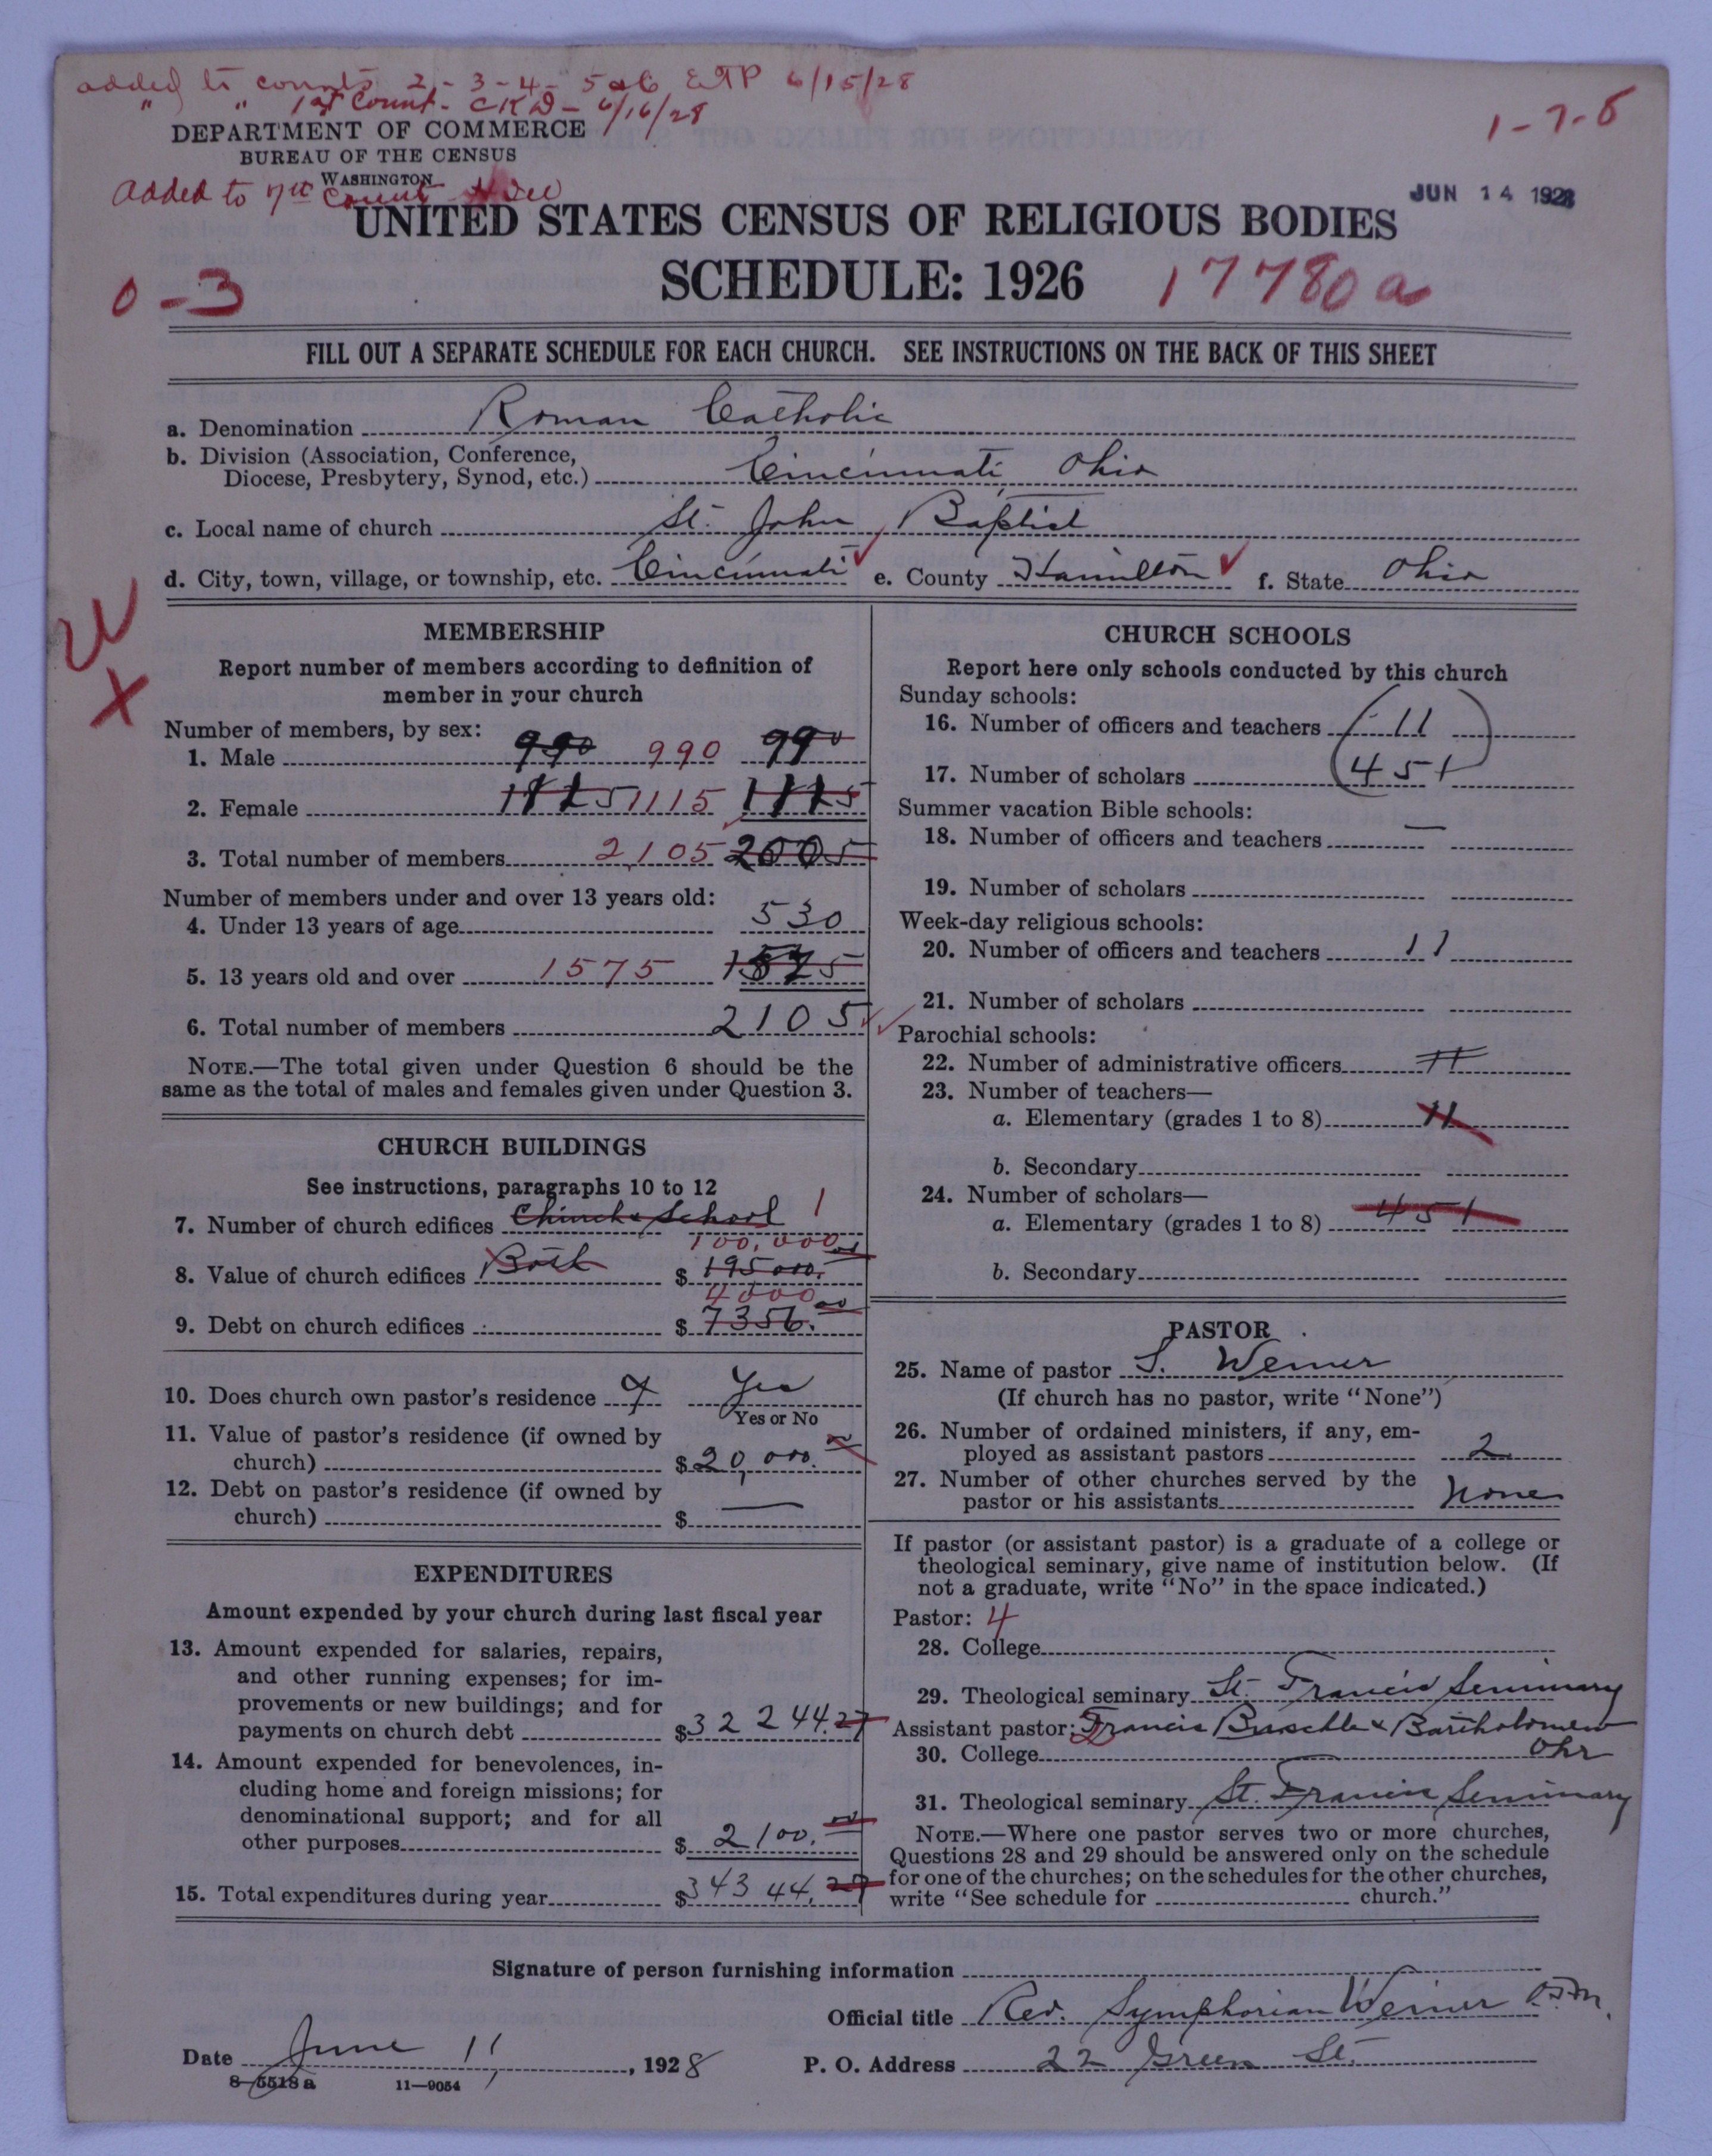 added to counts 2-3-4-5&6 ETP 6/15/28
" " 1st Count - CKD - 6/16/28
1-7-8
DEPARTMENT OF COMMERCE
BUREAU OF THE CENSUS
WASHINGTON
Added to 7th Count
JUN 14 1928
UNITED STATES CENSUS OF RELIGIOUS BODIES
SCHEDULE: 1926
17780a
0-3
FILL OUT A SEPARATE SCHEDULE FOR EACH CHURCH. SEE INSTRUCTIONS ON THE BACK OF THIS SHEET
a. Denomination Roman Catholic
b. Division (Association, Conference,
Diocese, Presbytery, Synod, etc.) Cincinnati, Ohio
c. Local name of church St. John Baptist
d. City, town, village, or township, etc. Cincinnati e. County Hamilton f. State Ohio
X
MEMBERSHIP
Report number of members according to definition of
member in your church
Number of members, by sex:
1. Male 990 990 990
2. Female 1115 1115 1115
3. Total number of members 2105 2005
Number of members under and over 13 years old:
4. Under 13 years of age 530
5. 13 years old and over 1575 1575
6. Total number of members 2105
NOTE.—The total given under Question 6 should be the
same as the total of males and females given under Question 3.
CHURCH BUILDINGS
See instructions, paragraphs 10 to 12
7. Number of church edifices Church & School 1
100,000
8. Value of church edifices Both $ 195000.00
4000
9. Debt on church edifices $ 7356.00
10. Does church own pastor's residence Yes
Yes or No
11. Value of pastor's residence (if owned by
church) $ 20,000.00
12. Debt on pastor's residence (if owned by
church) $ —
EXPENDITURES
Amount expended by your church during last fiscal year
13. Amount expended for salaries, repairs,
and other running expenses; for im-
provements or new buildings; and for
payments on church debt $ 32244.27
14. Amount expended for benevolences, in-
cluding home and foreign missions; for
denominational support; and for all
other purposes $ 2100.00
15. Total expenditures during year $ 34344.27
CHURCH SCHOOLS
Report here only schools conducted by this church
Sunday schools:
16. Number of officers and teachers 11
17. Number of scholars 451
Summer vacation Bible schools:
18. Number of officers and teachers —
19. Number of scholars
Week-day religious schools:
20. Number of officers and teachers 11
21. Number of scholars
Parochial schools:
22. Number of administrative officers 11
23. Number of teachers—
a. Elementary (grades 1 to 8) 11
b. Secondary
24. Number of scholars—
a. Elementary (grades 1 to 8) 451
b. Secondary
PASTOR
25. Name of pastor S. Weiner
(If church has no pastor, write "None")
26. Number of ordained ministers, if any, em-
ployed as assistant pastors 2
27. Number of other churches served by the
pastor or his assistants None
If pastor (or assistant pastor) is a graduate of a college or
theological seminary, give name of institution below. (If
not a graduate, write "No" in the space indicated.)
Pastor: 4
28. College
29. Theological seminary St. Francis Seminary
Assistant pastor: Francis & Bartholomew
30. College Ohr
31. Theological seminary St. Francis Seminary
NOTE.—Where one pastor serves two or more churches,
Questions 28 and 29 should be answered only on the schedule
for one of the churches; on the schedules for the other churches,
write "See schedule for church."
Signature of person furnishing information
Official title Rev. Symphorian Weiner O.F.M.
Date June 11, 1928 P. O. Address 22 Green St.
8—5518a 11—9054